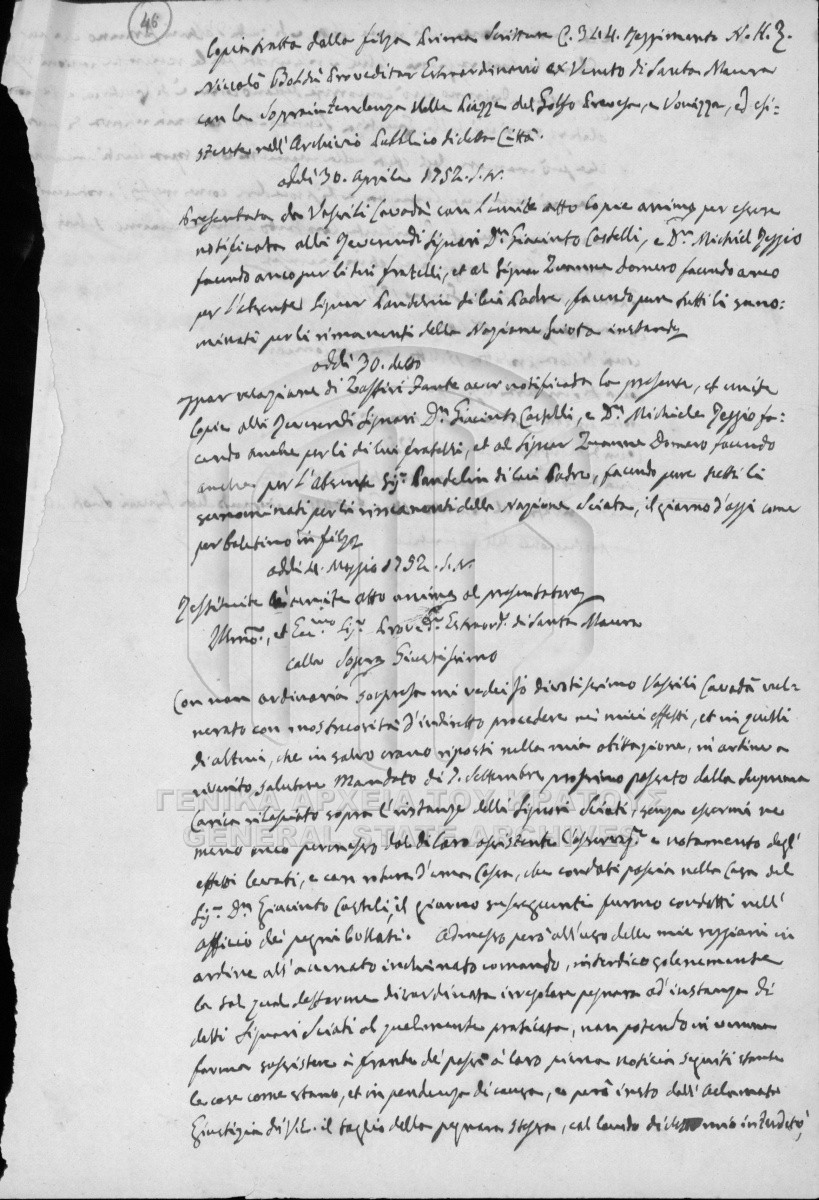 46
Copia tratta dalla filza Prima Scritture C. 344. Reggimento N. H. Z.
Niccolò Boldù Proveditor Estraordinario ex Veneto di Santa Maura
con la Sopraintendenza delle Piazze del Golfo Prevesa, e Vonizza, ed esi-
stente nell'Archivio Pubblico di detta Città.
addi 30. Aprile 1752. S. N.
Presentata da Vassili Cavadà con l'unite atto Copie annime per essere
notificata alli Reverendi Signori Dn. Giacinto Castelli, e Dn. Michiel Reggio
facendo anco per li suoi fratelli, et al Signor Zuanne Domero facendo anco
per l'absente Signor Pandelin di lui Padre, facendo pure tutti li sano:
minati per li rimanenti della Nazione Sciota instando
addi 30. detto
appar relazione di Zaffiri Fante aver notificata la presente, et unite
Copie alli Reverendi Signori Dn. Giacinto Castelli, e Dn. Michiele Reggio fa-
cendo anche per li di lui fratelli, et al Signor Zuanne Domero facendo
anche per l'absente Sigr. Pandelin di lui Padre, facendo pure tutti li
sunominati per li rimanenti della Nazione Sciota, il giorno d'oggi come
per boletino in filza
addi 4. Maggio 1752. S. N.
Restituite le unite atto annime al presentatore
Illmo., et Eccmo. Sigr. Proved.r Estraord.o di Santa Maura
colla Sopra Giustissimo
Con non ordinaria sorpresa mi vedei Io divotissimo Vassili Cavadà vul-
nerato con mostruosità d'indiretto procedere nei miei effetti, et in quelli
di altrui, che in salvo erano riposti nella mia abitazione, in ordine a
riverito salutare Mandato di 7. Settembre prossimo passato dalla Suprema
Carica rilasciato sopra l'instanze delli Signori Sciati, senza essermi ne
meno anco permesso dal di loro assistente l'osservaz.e e notamento degl'
effetti levati, e con rotura d'una Cassa, che condoti poscia nella Casa del
Sigr. Dn. Giacinto Castelli, il giorno susseguente furono condotti nell'
officio de' pegni bollati. Admesso però all'uso delle mie raggioni in
ordine all'accennato inchinato comando, interdico solenemente
la sal qual dessorme disordinata irregolare pegnora ad instanza di
detti Signori Sciati al quelamente praticata, non potendo in veruna
forma sussistere à fronte de' passi à loro piena noticia seguiti stante
le cose come stano, et in pendenza di causa, e però insto dall'Aclamata
Giustizia di V. E. il taglio della pegnora stessa, col laudo di detto mio interdeto,